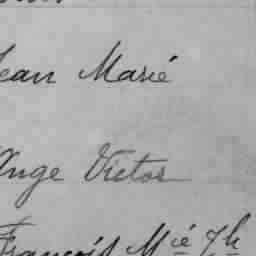 Jean Marié
Ange Victor
François Mié Jh